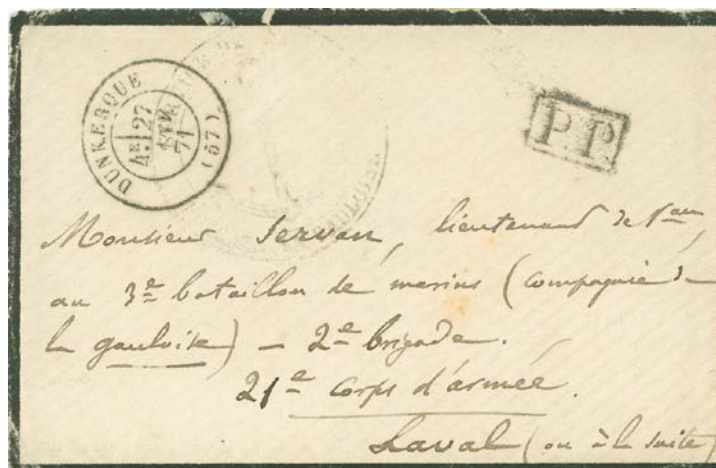 DUNKERQUE
4E 27
71
(57)
P.P.
Monsieur Servan, lieutenant de Vau,
au 3e bataillon de marins (compagnie de
la gauloise) — 2e brigade.
21e corps d'armée.
Laval (ou à la suite)